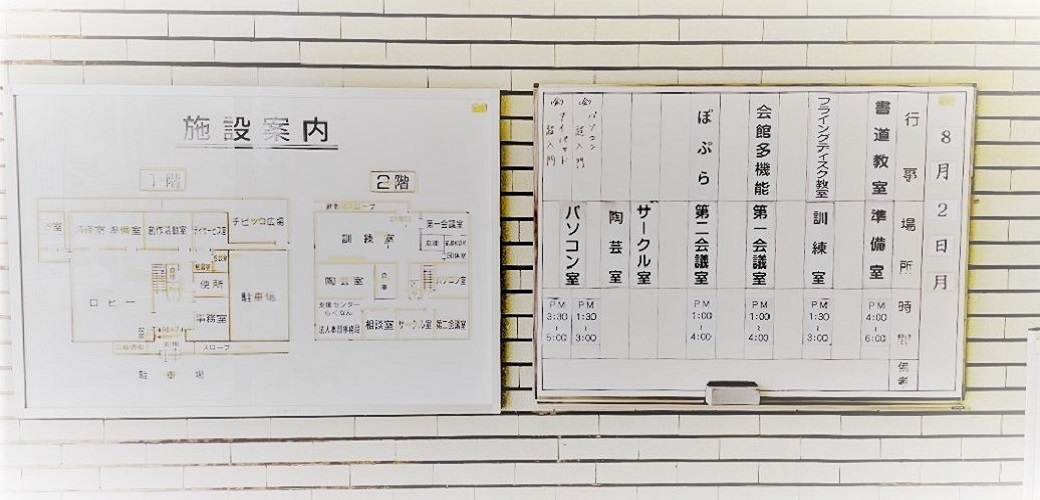 施設案内
1階
2階
チビッコ広場
準備室
創作活動室
デイサービス室
ロビー
便所
事務室
駐車場
スロープ
駐車場
スロープ
第一会議室
訓練室
団体室
陶芸室
パソコン室
支援センター
らくなん
法人本部事務局
相談室
サークル室
第二会議室
8月2日月
行事
場所
時
備考
書道教室
準備室
PM
4:00
~
6:00
フライングディスク教室
訓練室
PM
1:30
~
3:00
会館多機能
第一会議室
PM
1:00
~
4:00
ぽぷら
第二会議室
PM
1:00
~
4:00
サークル室
陶芸室
パソコン室
パソコン
入門
PM
1:30
~
3:00
入門
PM
3:30
~
5:00